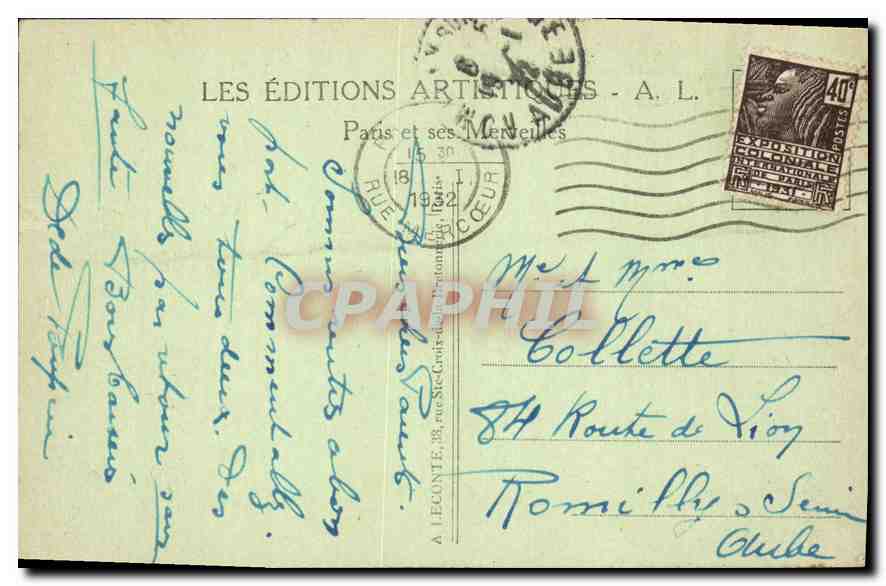 LES ÉDITIONS ARTISTIQUES - A. L.
Paris et ses Merveilles
15 30
18 I
1932
RUE MERCŒUR
40c
POSTES
EXPOSITION
COLONIALE
INTERNATIONALE
DE PARIS
1931
A LECONTE, 38, rue Ste-Croix-de-la-Bretonnerie, Paris
CPAPHIL
Mr et Mmes
Collette
84 Route de Lion
Romilly s Seine
Aube
Bien chers Parents.
Sommes rentés a bon
port. Comment allez
vous tous deux. Des
nouvelles par retour sans
faute Bons Baisers
Dédé